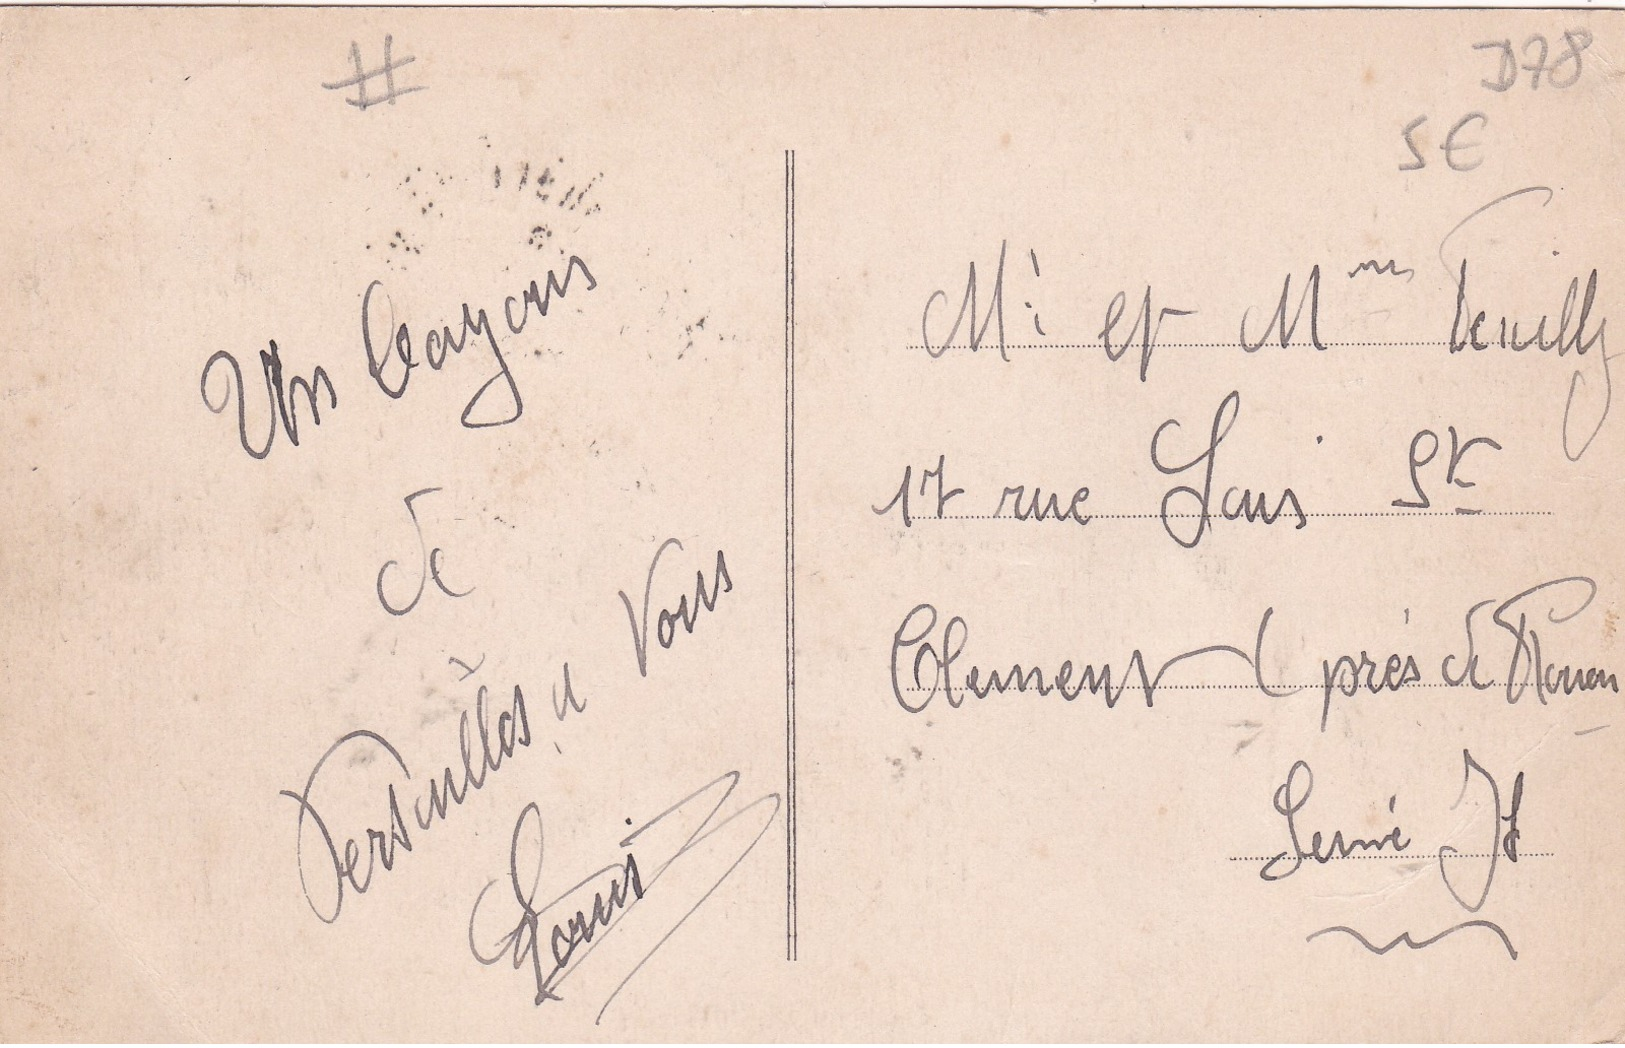 #
Un Crayons
de
Versailles a Vous
Louis
D78
5€
Mr et Mme
17 rue Louis St
Clement (près de Rouen
Seine If